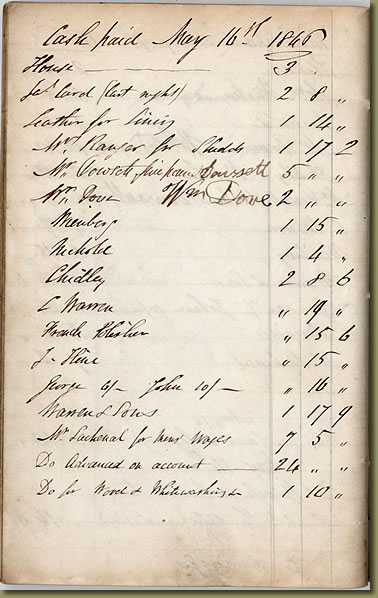 Cash paid May 16th 1846
House 3 .
Jas Card (last night) 2 8 "
Leather for lining 1 14 "
Mrs Ranger for Studds 1 17 2
Mr Dowsett five pounds Dowsett 5 " "
Wm Dove Wm Dove 2 " "
Mienberg 1 15 "
Nickold 1 4 "
Chidley 2 8 6
C Warren " 19 "
Frank " 15 6
J. " 15 "
George 6/- John 10/- " 16 "
Warren & Sons 1 17 9
Mr Lachenal for Mens Wages 7 5 "
Do Advanced on account 24 " "
Do for Wood & Whitewashing &c 1 10 "